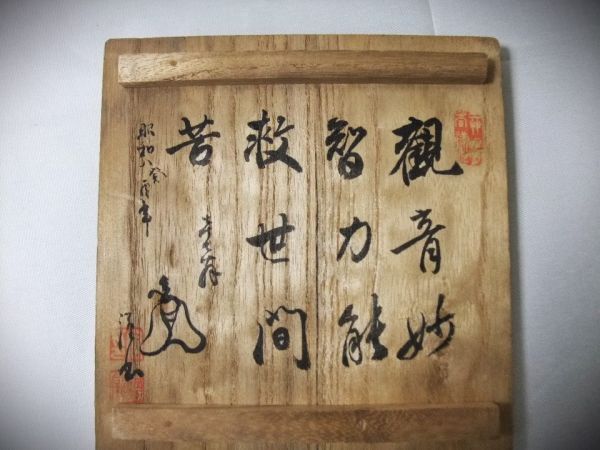 觀音妙
智力能
救世間
苦
昭和八癸酉年